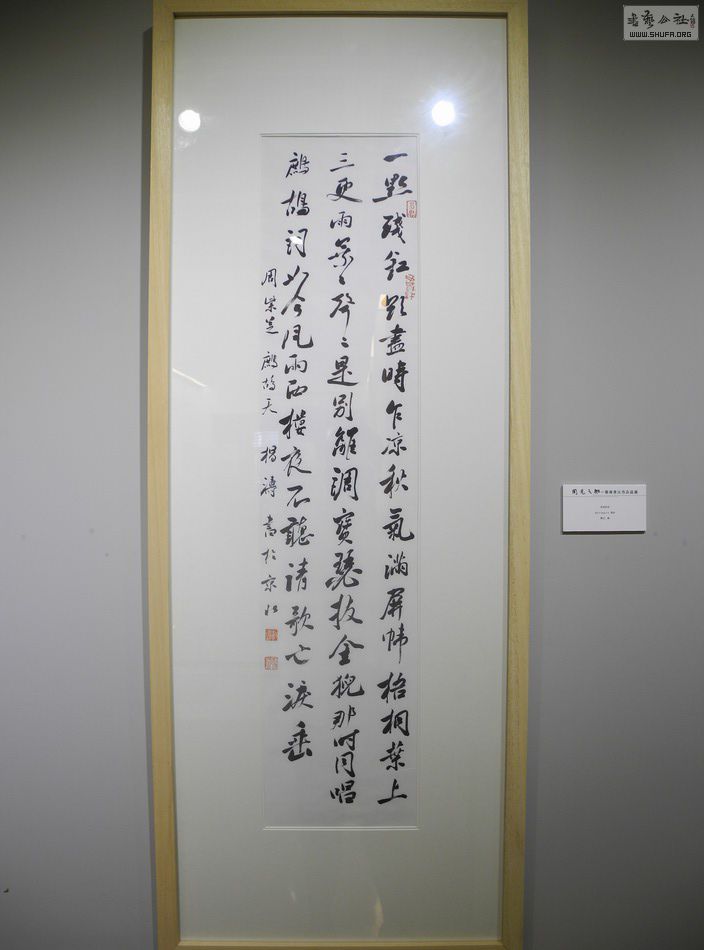 書藝公社
WWW.SHUFA.ORG
一點殘紅欲盡時乍凉秋氣滿屏幃梧桐葉上
三更雨葉〻聲〻是别離調寶瑟拔金猊那时同唱
鷓鴣詞如今風雨西樓夜不聽清歌也淚垂
周紫芝 鷓鴣天 楊濤書於京